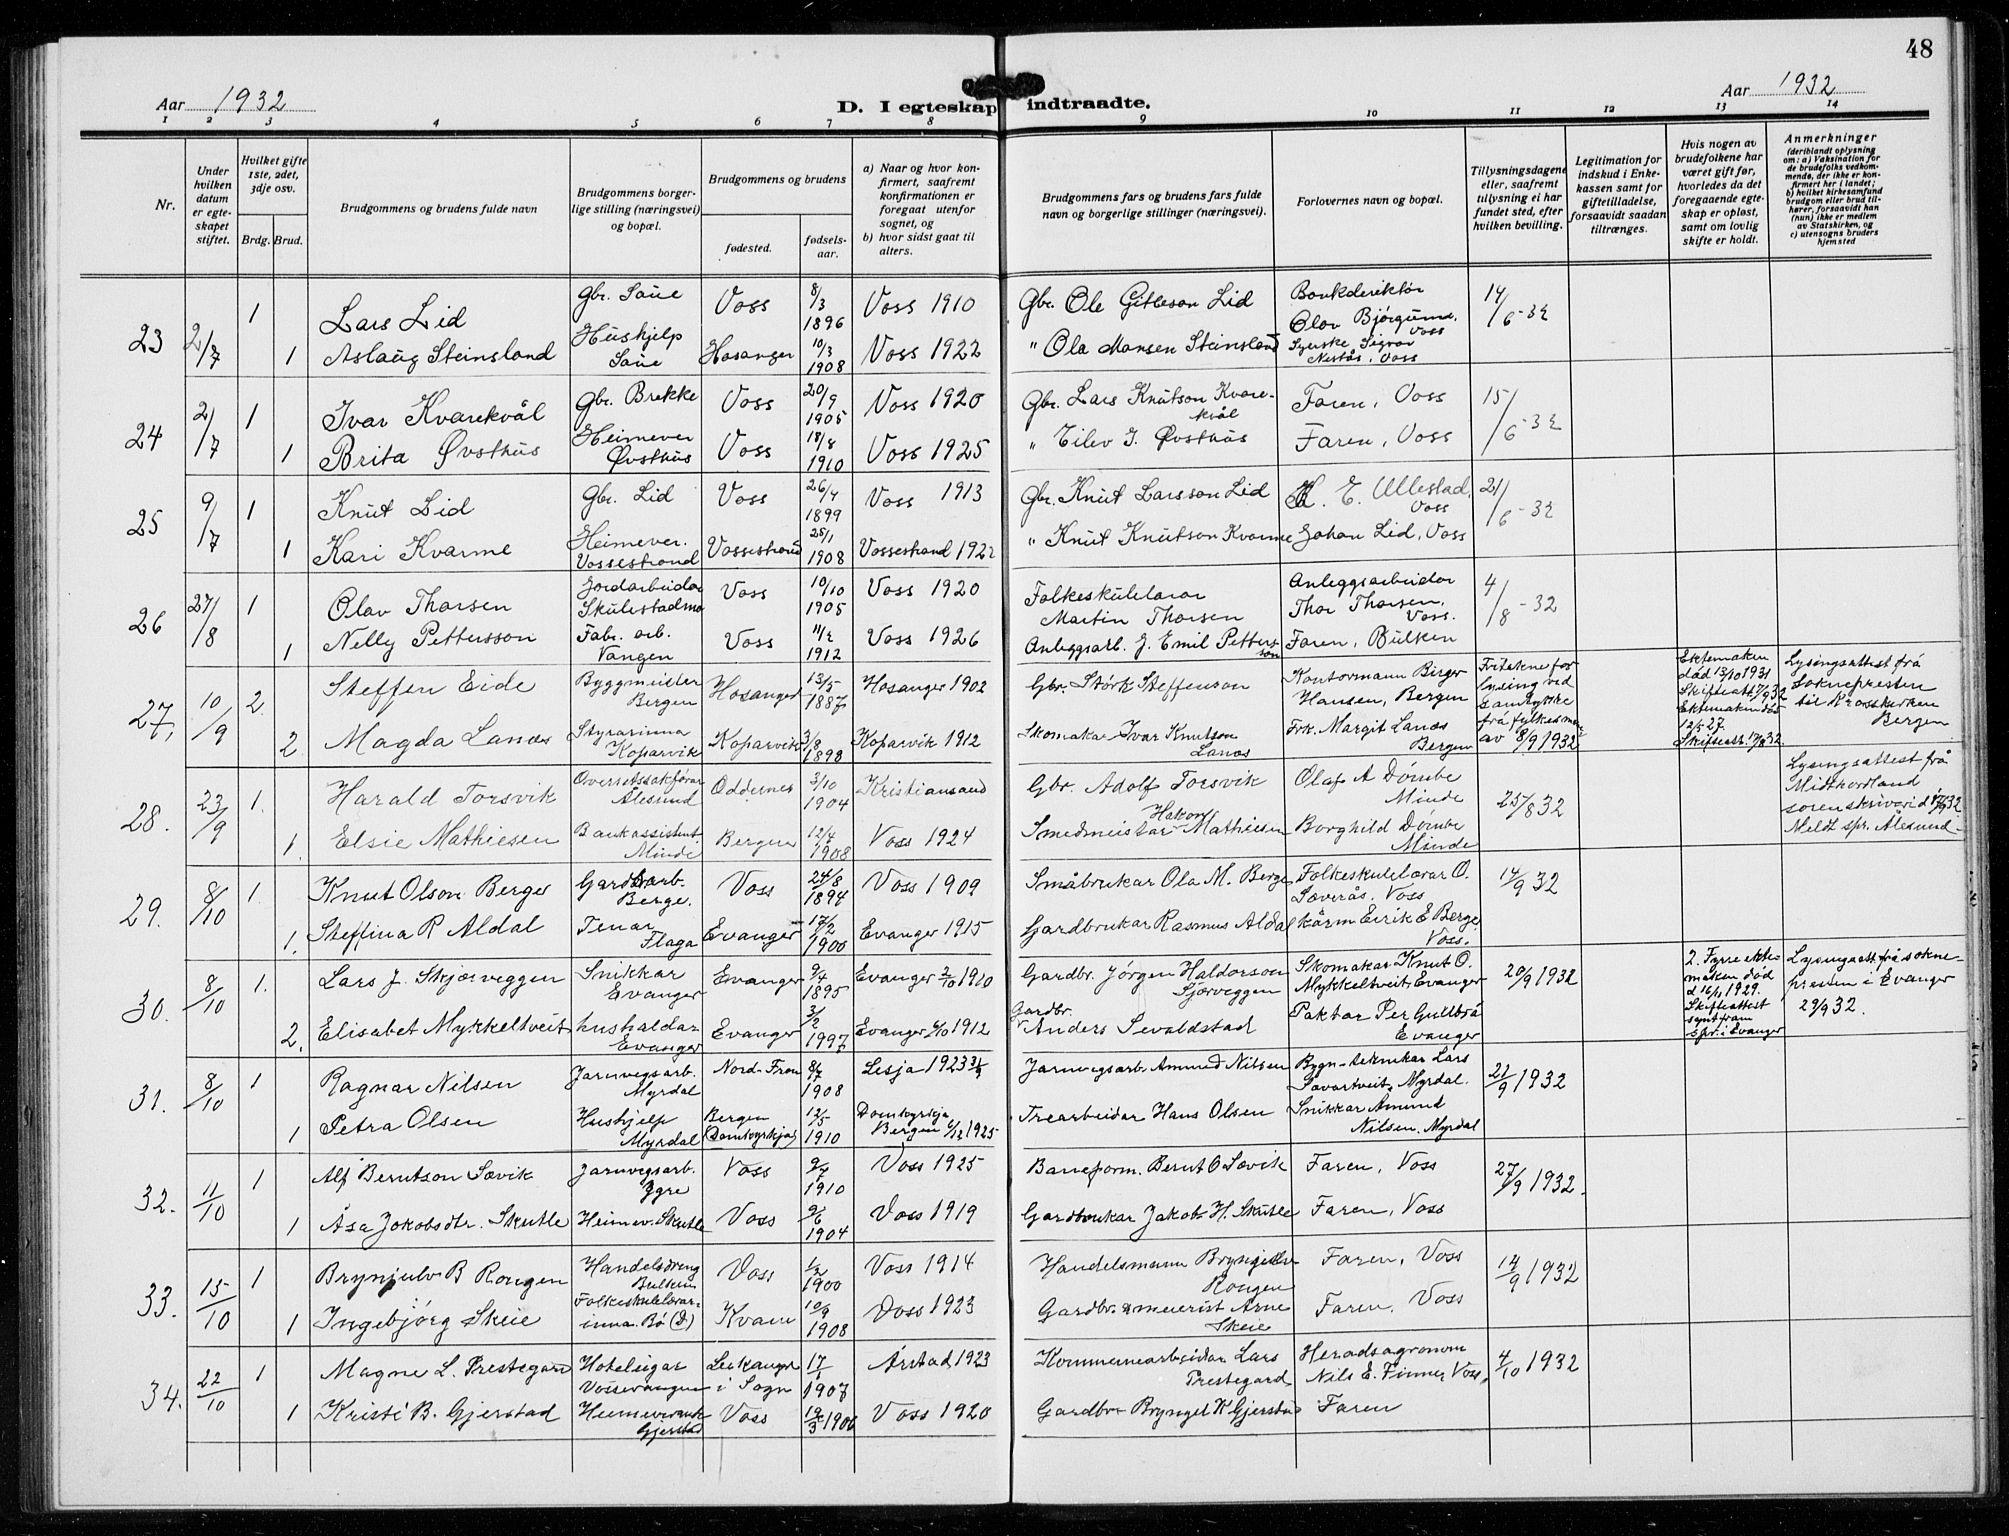 48
Aar 1932
D. I egteskap indtraadte.
Aar 1932
1 2 3 4 5 6 7 8 9 10 11 12 13 14
Nr.
Under hvilken datum er egteskapet stiftet.
Hvilket gifte 1ste, 2det, 3dje osv.
Brdg. Brud.
Brudgommens og brudens fulde navn
Brudgommens borgerlige stilling (næringsvei) og bopæl.
Brudgommens og brudens
fødested.
fødselsaar.
a) Naar og hvor konfirmert, saafremt konfirmationen er foregaat utenfor sognet, og
b) hvor sidst gaat til alters.
Brudgommens fars og brudens fars fulde navn og borgerlige stillinger (næringsvei).
Forlovernes navn og bopæl.
Tillysningsdagene eller, saafremt tillysning ei har fundet sted, efter hvilken bevilling.
Legitimation for indskud i Enkekassen samt for giftetilladelse, forsaavidt saadan tiltrænges.
Hvis nogen av brudefolkene har været gift før, hvorledes da det foregaaende egteskap er opløst, samt om lovlig skifte er holdt.
Anmerkninger
(deriblandt oplysning om: a) Vaksination for de brudefolks vedkommende, der ikke er konfirmert her i landet; b) hvilket kirkesamfund brudgom eller brud tilhører, forsaavidt han (hun) ikke er medlem av Statskirken, og c) utensogns bruders hjemsted
23 2/7 1 Lars Lid Gbr. Saue Voss 8/3 1896 Voss 1910 Gbr. Ole Gitleson Lid Bankdirektør Olav Bjørgum, Voss 14/6-32
1 Aslaug Steinsland Hushjelp Saue Hosanger 10/3 1908 Voss 1922 " Ola Monsen Steinsland Syerske Sigrov Nestås, Voss
24 2/7 1 Ivar Kvarekvål Gbr. Brekke Voss 20/9 1905 Voss 1920 Gbr. Lars Knutson Kvarekvål Faren, Voss 15/6-32
1 Brita Øvsthus Heimever Øvsthus Voss 18/8 1910 Voss 1925 " Eilev J. Øvsthus Faren, Voss
25 9/7 1 Knut Lid Gbr. Lid Voss 26/4 1899 Voss 1913 Gbr. Knut Larsson Lid K. E. Ullestad, Voss 21/6-32
1 Kari Kvarme Heimever. Vossestrand Vossestrand 25/1 1908 Vossestrand 1922 " Knut Knutson Kvarme Johan Lid, Voss
26 27/8 1 Olav Thorsen Jordarbeidar Skulestadmo Voss 10/10 1905 Voss 1920 Folkeskulelærar Martin Thorsen Anleggsarbeidar Thor Thorsen, Voss. 4/8-32
1 Nelly Pettersson Fabr. arb. Vangen Voss 11/2 1912 Voss 1926 Anleggsarb. J. Emil Pettersson Faren, Bulken
27, 10/9 2 Steffen Eide Byggmeister Bergen Hosanger 13/5 1887 Hosanger 1902 Gbr. Størk Steffenson Kontormann Birger Hansen, Bergen Fritekne for lysing ved samtykke frå fylkesmann av 8/9 1932 Ektemaken død 13/10 1931 Skifteatt. 7/9 32 Lysingsattest frå soknepresten til Krosskirken Bergen
2 Magda Lanes Styrarinna Koparvik Koparvik 3/8 1898 Koparvik 1912 Skomakar Ivar Knutson Lanes Frk. Margit Lanes Bergen Ektemaken død 12/5 27. Skifteatt. 17/8 32.
28. 23/9 1. Harald Torsvik Overrettssakførar Ålesund Oddernes 3/10 1904 Kristiansand Gbr. Adolf Torsvik Olaf A Dømbe Minde 25/8 32 Lysingsattest frå Midthordland sorenskrivari d 17/9 32 Meldt spr. Ålesund
1. Elsie Mathiesen Bankassistent Minde Bergen 12/4 1908 Voss 1924 Smedmeistar Hakon Mathiesen Borghild Dømbe Minde
29. 8/10 1. Knut Olson Berge Gardsarb. Berge. Voss 24/8 1894 Voss 1909 Småbrukar Ola M. Berge Folkeskulelærar O. Saverås. Voss 14/9 32
1. Steffina R Aldal Tenar Flaga Evanger 17/2 1900 Evanger 1915 Gardbrukar Rasmus Aldal kårm Eirik E Berge, Voss.
30. 8/10 1. Lars J. Skjørveggen Snikkar Evanger Evanger 9/4 1895 Evanger 2/10 1910 Gardbr. Jørgen Haldorson Sjørveggen Skomakar Knut O. Mykkeltveit, Evanger 20/9 1932 2. Fyrre ektemaken død d 16/11 1929. Skifteattest synt fram spr. i Evanger Lysingsatt frå soknepresten i Evanger 29/9 32.
2. Elisabet Mykkeltveit hushaldar Evanger Evanger 3/2 1997 Evanger 2/10 1912 Gardbr. Anders Sevaldstad Paktar Per Gullbrå Evanger
31. 8/10 1 Ragnar Nilsen Jarnvegsarb. Myrdal Nord-Fron 8/7 1908 Lesja 1923 Jarnvegsarb. Ammund Nilsen Bygn-teknikar Lars Tavartveit, Myrdal. 21/9 1932
1 Petra Olsen Hushjelp Myrdal Bergen Domkyrkja 12/5 1910 Domkyrkja Bergen 6/12 1925 Trearbeidar Hans Olsen Snikkar Amund Nilsen. Myrdal
32. 11/10 1 Alf Berntson Sævik Jarnvegsarb. Ygre Voss 9/7 1910 Voss 1925 Baneform. Bernt O Sævik Faren, Voss 27/9 1932.
1 Åsa Jokobsdtr. Skutle Heimev. Skutle Voss 9/6 1904 Voss 1919 Gardbrukar Jakob H. Skutle Faren, Voss
33. 15/10 1 Brynjulv B Rongen Handelsdreng Bulken Voss 1/2 1900 Voss 1914 Handelsmann Rongen Faren, Voss 14/9 1932
1 Ingebjörg Skeie Folkeskulelærarinna. Bø Kvam 10/9 1908 Voss 1923 Gardbr. & meierist Arne Skeie Faren, Voss
34. 22/10 1 Magne L. Prestegard Hoteleigar Vossevangen Leikanger i Sogn 17/1 1907 Årstad 1923 Kommunearbeidar Lars Prestegard Heradsagronom Nils E. Finne, Voss, 4/10 1932
1 Kristi B. Gjerstad Gjerstad Voss 19/3 1906 Voss 1920 Gardbr Brynjel K Gjerstad Faren